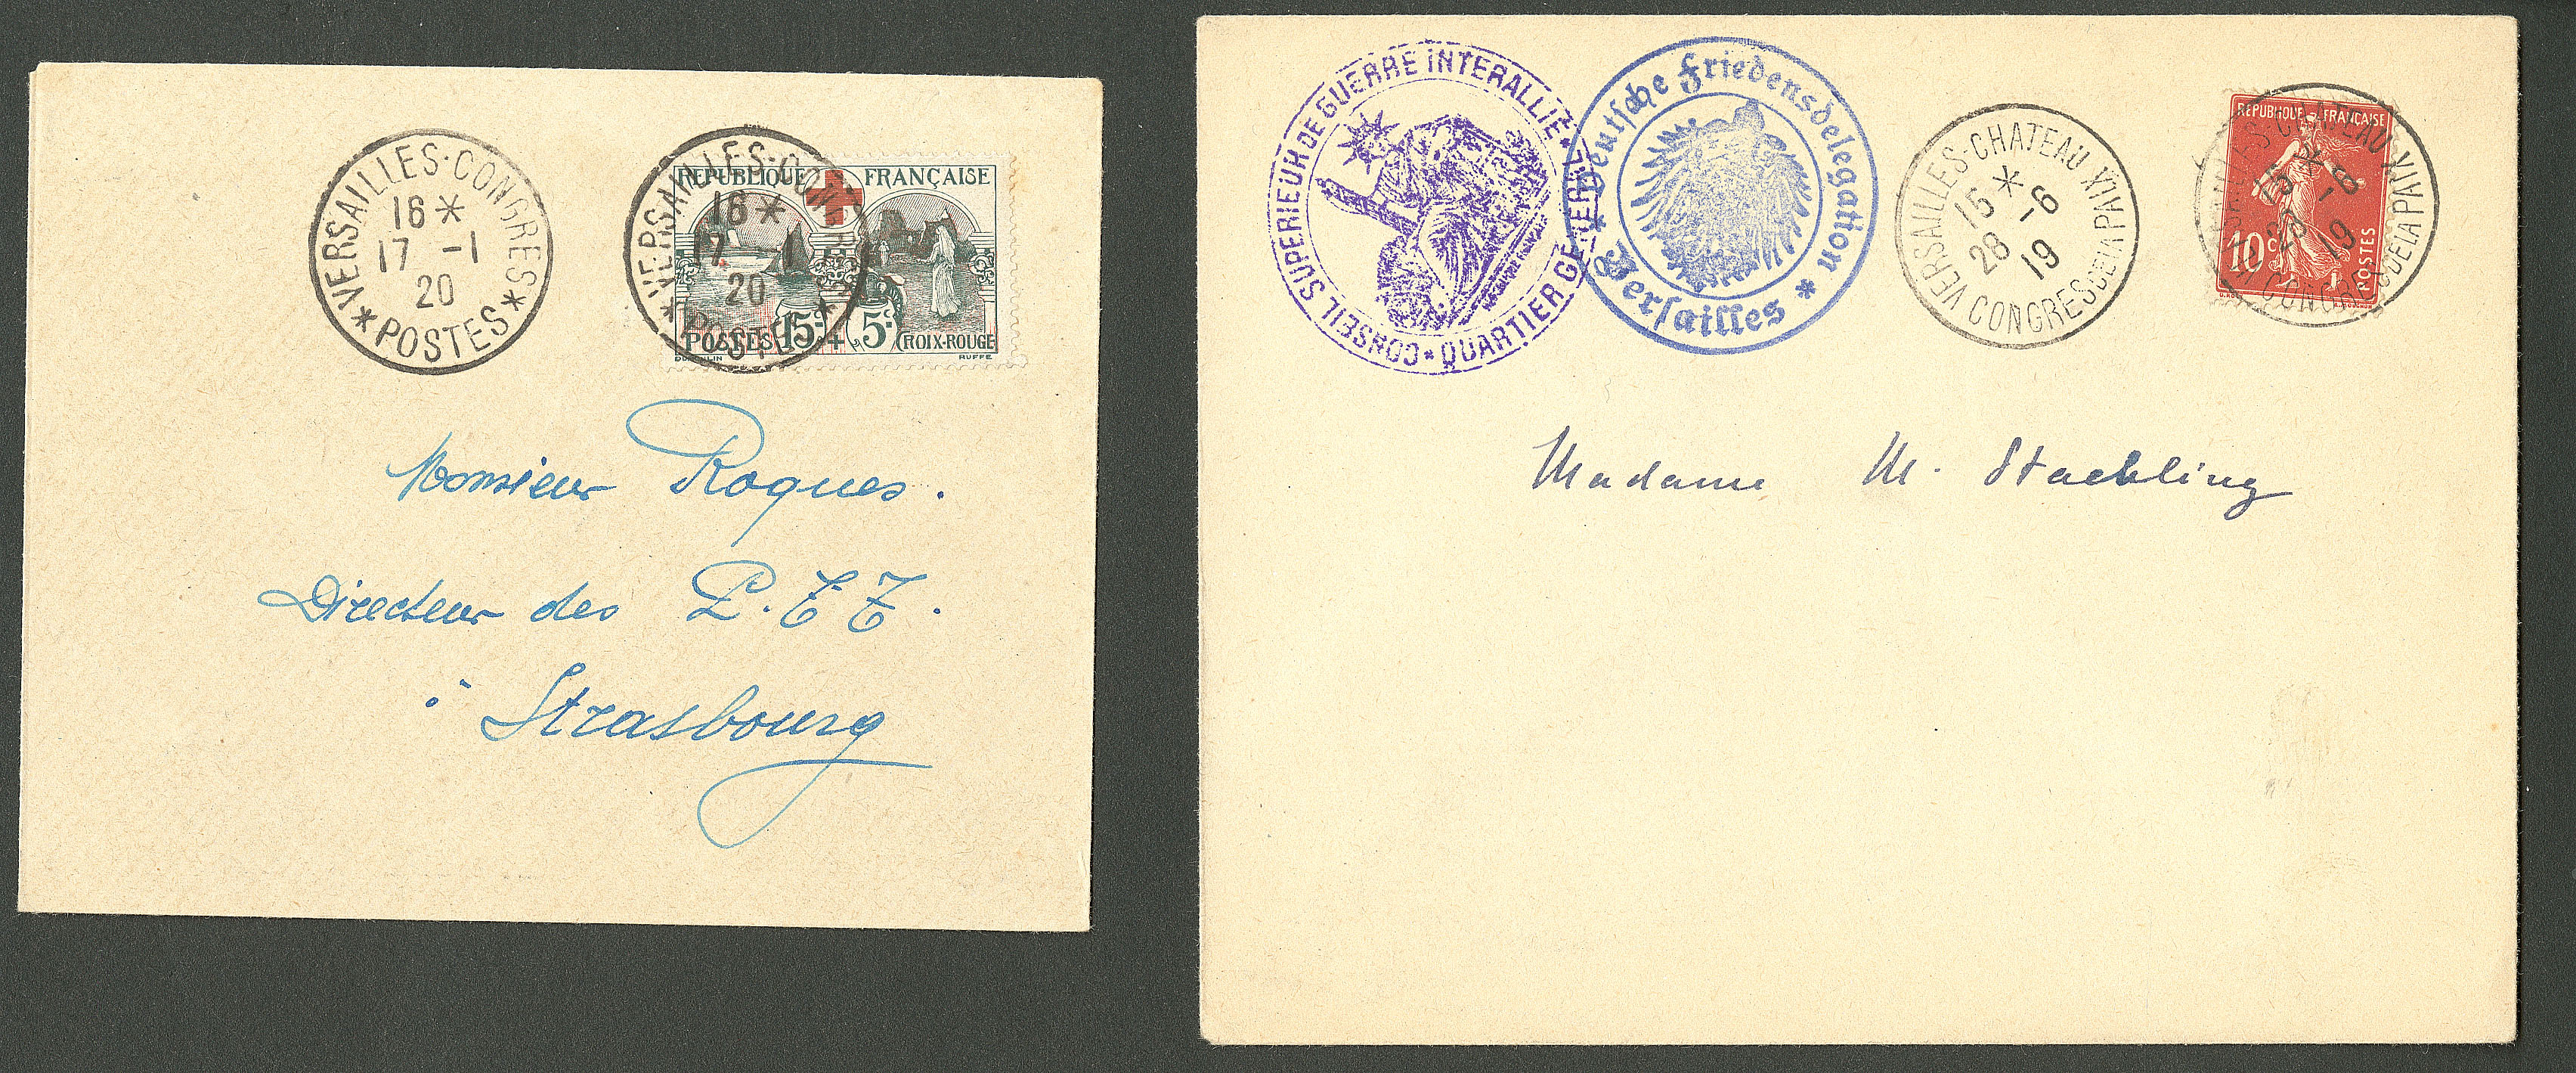 *VERSAILLES·CONGRES*
16*
17 -1
20
POSTES
*VERSAILLES·CONGRES*
16*
17 -1
20
POSTES
REPUBLIQUE FRANÇAISE
POSTES 15c + 5c CROIX-ROUGE
RUFFE
Monsieur Roques.
Directeur des P.T.T.
à Strasbourg
CONSEIL SUPERIEUR DE GUERRE INTERALLIÉ
* QUARTIER GENERAL *
* Deutsche Friedensdelegation *
Versailles
VERSAILLES-CHATEAU XIV
15*
28 -6
19
CONGRES DE LA PAIX
VERSAILLES-CHATEAU XIV
15*
28 -6
19
CONGRES DE LA PAIX
REPUBLIQUE FRANÇAISE
10c
POSTES
Madame M. Staehling